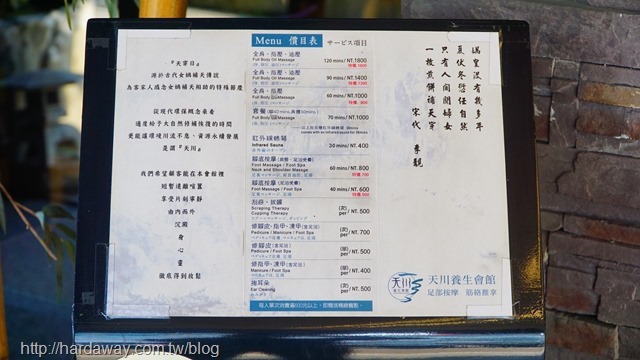 『天穿日』
源於古代女媧補天傳說
為客家人感念女媧補天相助的特殊節慶
從現代環保概念來看
適度給予大自然修補復育的時間
更能讓環境川流不息、資源永續發展
是謂『天川』
我們希望顧客能在本會館裡
短暫遠離喧囂
享受片刻寧靜
由內而外
沉澱
身
心
靈
徹底得到放鬆
Menu 價目表 サービス項目
全身‧指壓‧油壓
Full Body Oil Massage 120 mins/ NT.1800
全身‧指壓‧油壓
Full Body Oil Massage 90 mins/ NT.1400
全身‧指壓
Full Body Massage 60 mins/ NT.1000
特價: 900
套餐
Full Body Massage 70 mins/ NT.1000
紅外線烤箱
Infrared Sauna 30 mins/ NT. 400
腳底按摩
Foot Massage / Foot Spa 60 mins/ NT. 800
Neck and Shoulder Massage 特價:700
腳底按摩 (足浴免費)
Foot Massage / Foot Spa 40 mins/ NT. 600
特價:500
刮痧‧拔罐
Scraping Therapy
Cupping Therapy (次) per/ NT. 500
修腳皮‧指甲‧凍甲(含足浴)
Pedicure / Manicure / Foot Spa (次) per/ NT. 700
修腳皮(含足浴)
Pedicure / Foot Spa (單) per/ NT. 500
修指甲‧凍甲(含足浴)
Manicure / Foot Spa (單) per/ NT. 400
掏耳朵
Ear Cleaning (次) per/ NT. 500
媧皇沒有幾多年
夏伏冬愆任自然
只有人間閒婦女
一枚煎餅補天穿
宋代 李覯
天川
天川養生會館
足部按摩 筋絡推拿
http://hardaway.com.tw/blog